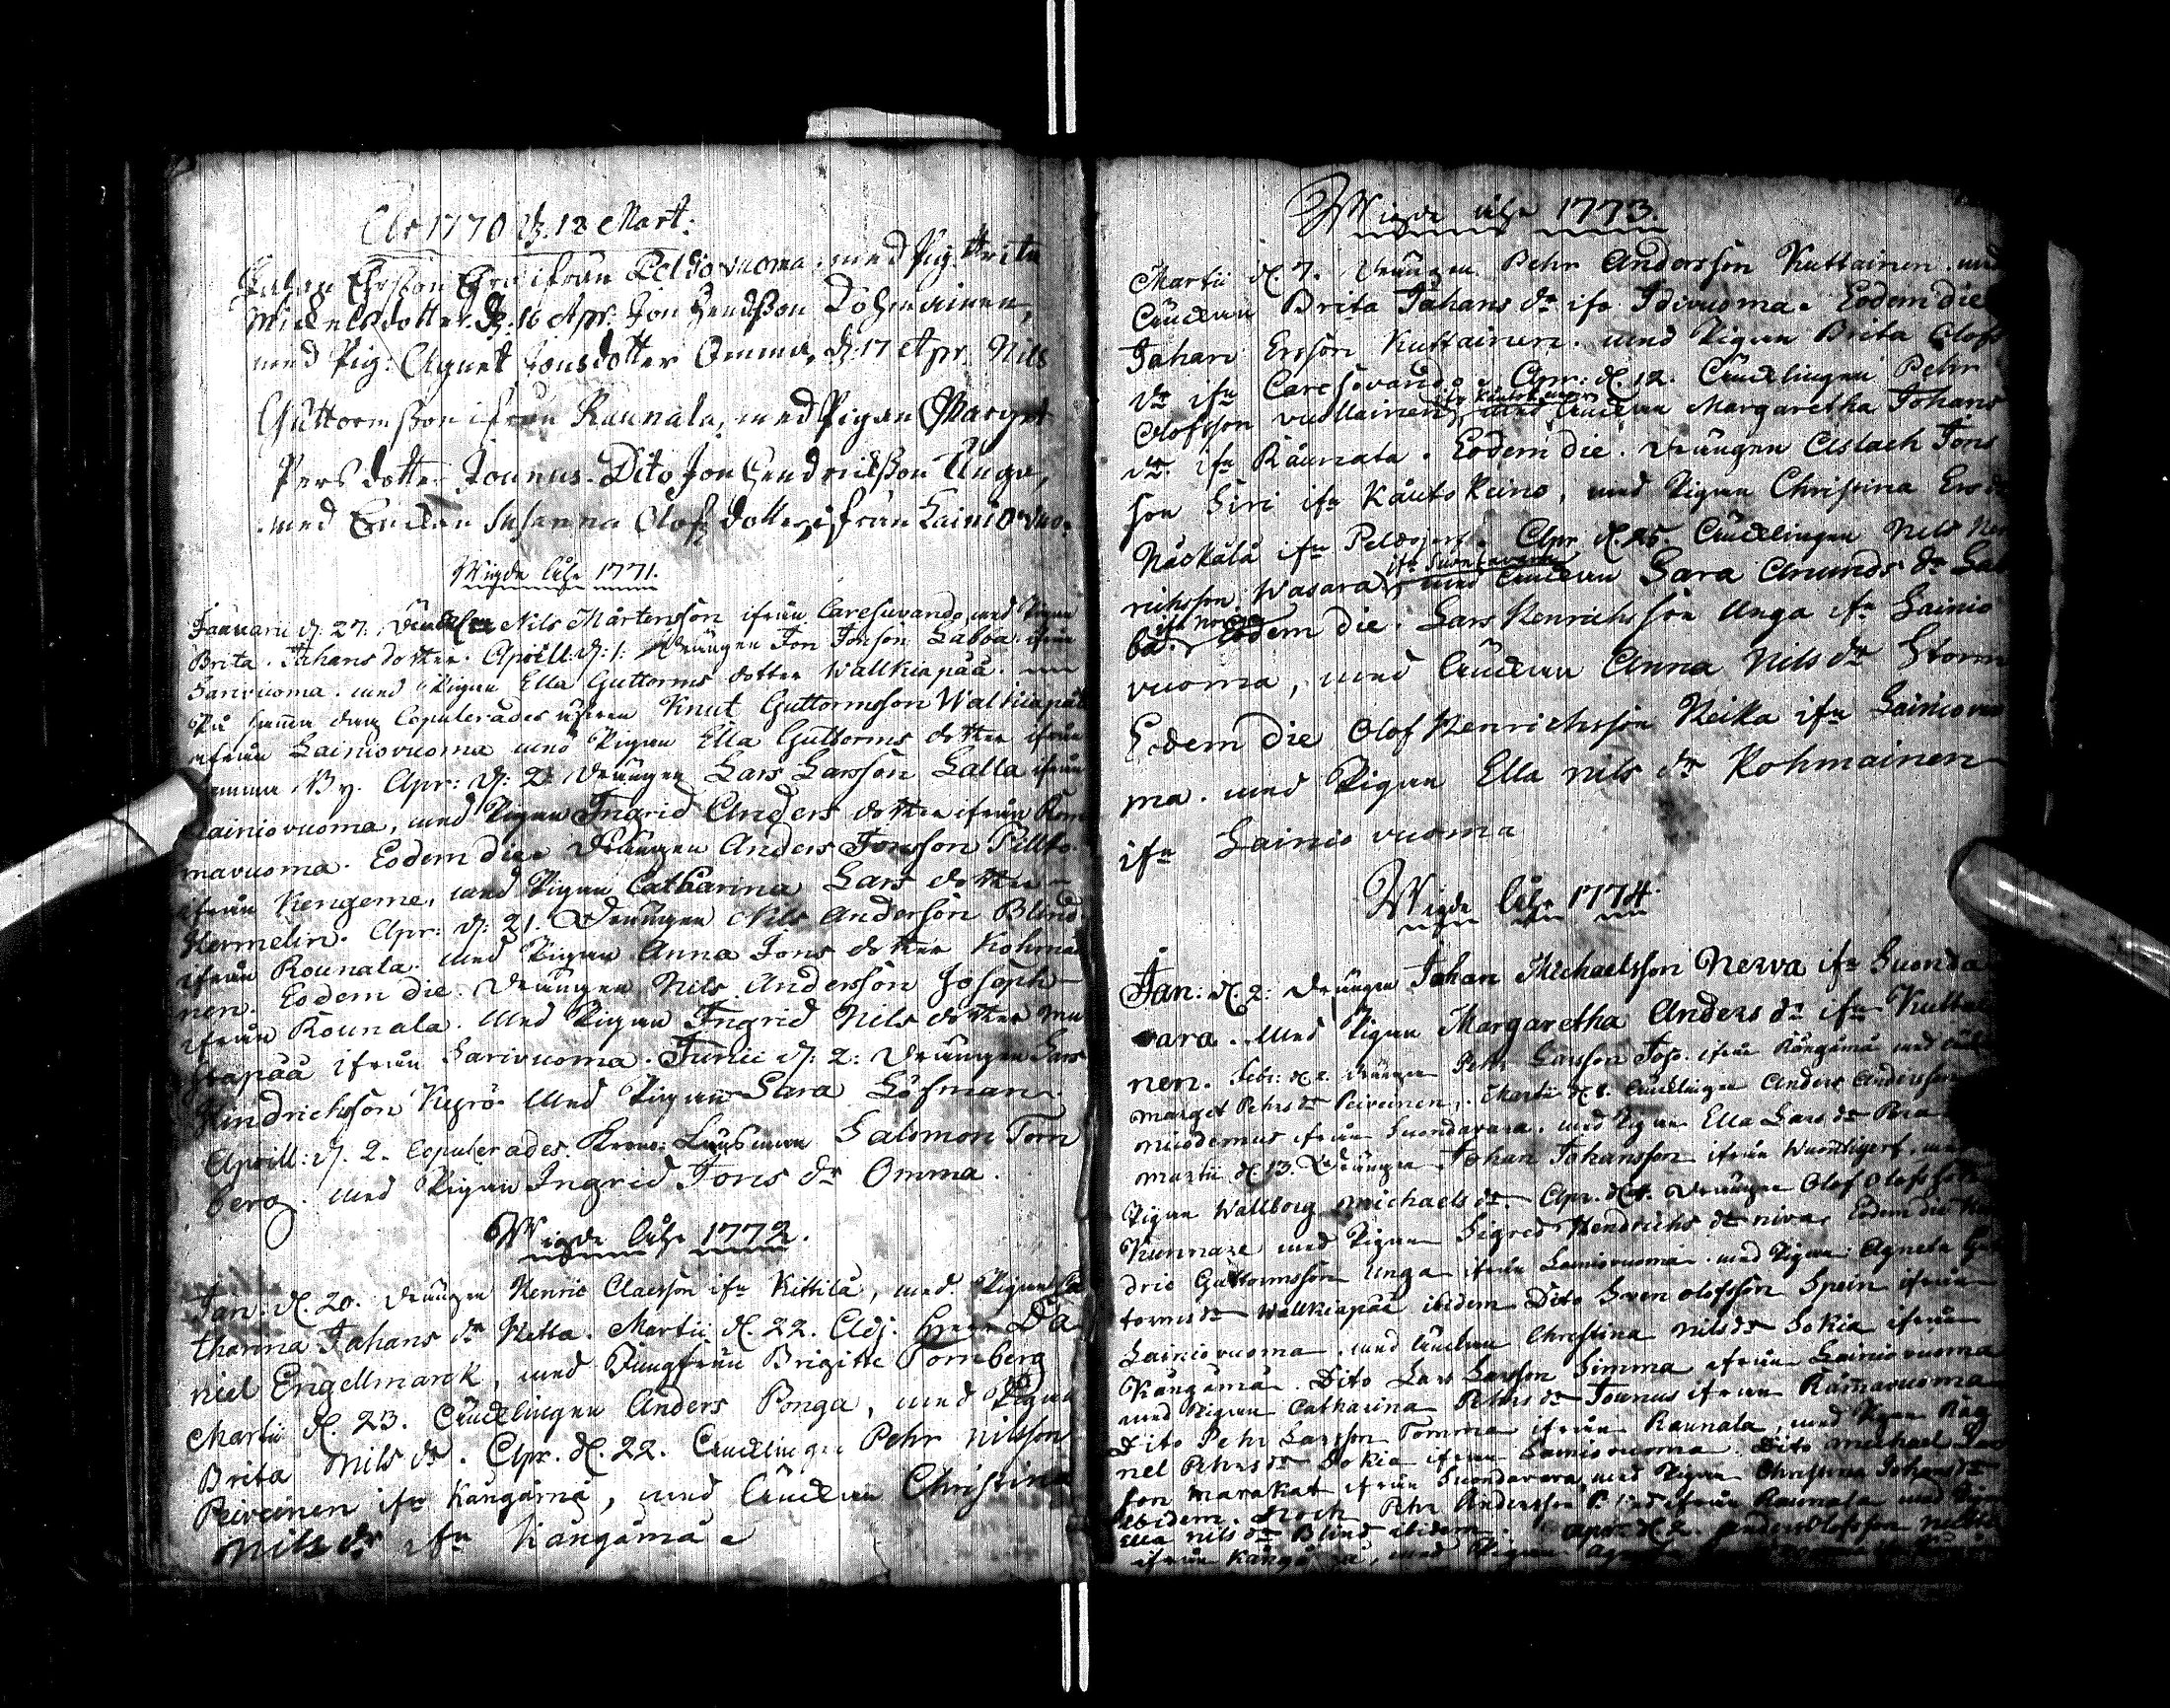 Åhr 1770 d. 18 Mart:
Ersson ifrån Peldovuoma med Pig. Brita
Mickelsdotter. D: 16 Apr. Jon Hendersson Kohmainen,
med Pig: Agnet Jonsdotter Omma, d: 17 Apr. Nils
Guttormsson ifrån Raunala, med Pigan Marget
Persdotter Jounus. Dito Jon Hendricksson Unga,
med Enckan Susanna Olofsdotter, ifrån Lainiovuo-
Wigde Åhr 1771.
Januarii d: 27: Nils Mårtensson ifrån Caresuvando, med Pigan
Brita Johans dotter. Aprill: d: 1: Drängen Jon Jonsson Labba ifrån
Sarivuoma. med Pigan Ella Guttorms dotter Wallkiapää.
På samma dag Copulerades äfven Knut Guttormsson Walkiapää
ifrån Lainiovuoma med Pigan Ella Guttorms dotter ifrån
samma By. Apr: d: 2: Drängen Lars Larsson Lalla ifrån
Lainiovuoma, med Pigan Ingrid Anders dotter ifrån Röm-
mavuoma. Eodem die Drängen Anders Jonsson Pilto
ifrån Kengeme, med Pigan Catharina Lars dotter
Hermelin. Apr: d: 21. Drängen Nils Andersson Blind
ifrån Rounala. med Pigan Anna Jons dotter Kohmai-
nen. Eodem die. Drängen Nils Andersson Joseph
ifrån Rounala. Med Pigan Ingrid Nils dotter Mu-
stapää ifrån Sarivuoma. Junii d: 2: Drängen Lars
Hindrichsson Kyrö Med Pigan Sara Löfman.
Aprill: d. 2. Copulerades. Krono: Länsman Salomon Torn
berg. med Pigan Ingrid Jons dr Omma.
Wigde Åhr 1772.
Jan: d. 20. Drängen Henric Claesson ifr Kittilä, med. Pigan Ca
tharina Johans dr Hetta. Martii d. 22. Adj. Herr Da
niel Engellmarck, med Jungfrun Brigitte Tornberg
Martii d. 23. Encklingen Anders Ponga, med Pigan
Brita Nils dr. Apr. d. 22. Encklingen Pehr Nilsson
Peiveinen ifr Kängämä, med Enckan Christina
Nils dr ifr Kängämä
Wigde åhr 1773.
Martii d. 7. Drängen Pehr Andersson Kuttainen. med
Enckan Brita Johans dr ifr Idivuoma. Eodem die
Johan Ersson Kuttainen. med Pigan Brita Olofs
dr ifr Caresovando. Apr: d. 12. Encklingen Pehr
Olofsson Vuollainen, ifr Kautokeino, med Enckan Margaretha Johans
dr ifr Räunala. Eodem die. Drängen Aslach Jons
son Siri ifr Kautokeino, med Pigan Christina Ers dr
Näskälä ifr Peldojerf. Apr. d. 25. Encklingen Nils Hen
richsson Wasara, ifr Suondavara med Enckan Sara Amunds dr Lab
ba. ifr Norge Eodem die. Lars Henrichsson Unga ifr Lainio
vuoma, med Enckan Anna Nils dr Storm
Eodem die Olof Henrichsson Neika ifr Lainiovuo
ma. med Pigan Ella Nils dr Kohmainen
ifr Lainiovuoma
Wigde Åhr 1774.
Jan: d. 2: Drängen Johan Michaelsson Nerva ifr Suonda
vara. Med Pigan Margaretha Anders dr ifr Kuttai
nen. Febr: d. 2. Drängen Pehr Larsson Joso. ifrån Kängämä med
Marget Pehrs dr Peiveinen. Martii d. 8. Encklingen Anders Andersson
Nicodemus ifrån Suondavara. med Pigan Ella Lars dr
Martii d. 13. Drängen Johan Johansson ifrån
Pigan Wallborg Michaels dr. Apr. d. 4. Drängen Olof Olofsson
Kunnare med Pigan Sigred Hendrichs dr niva. Eodem die Hen
dric Guttormsson Unga ifrån Lainiovuoma. med Pigan Agneta Gut
torms dr Wallkiapää ibidem Dito Sven Olofsson Spein ifrån
Lainiovuoma. med Enckan Christina Nils dr Sokia ifrån
Kängämä. Dito Lars Larsson Simma ifrån Lainiovuoma
med Pigan Catharina Pehrs dr Jounus ifrån Rämavuoma
Dito Pehr Larsson Tomma ifrån Raunala, med Pigan Rag
nel Pehrs dr Sokia ifrån Lainiovuoma. Dito Michael Lars
son Marakat ifrån Suondavara, med Pigan Christina Johans dr
ibidem. Noch Pehr Andersson Blind ifrån Raunala med Pigan
Ella Nils dr Blind ibidem. Apr. d. 2. Anders Olofsson
ifrån Kängämä, med Pigan